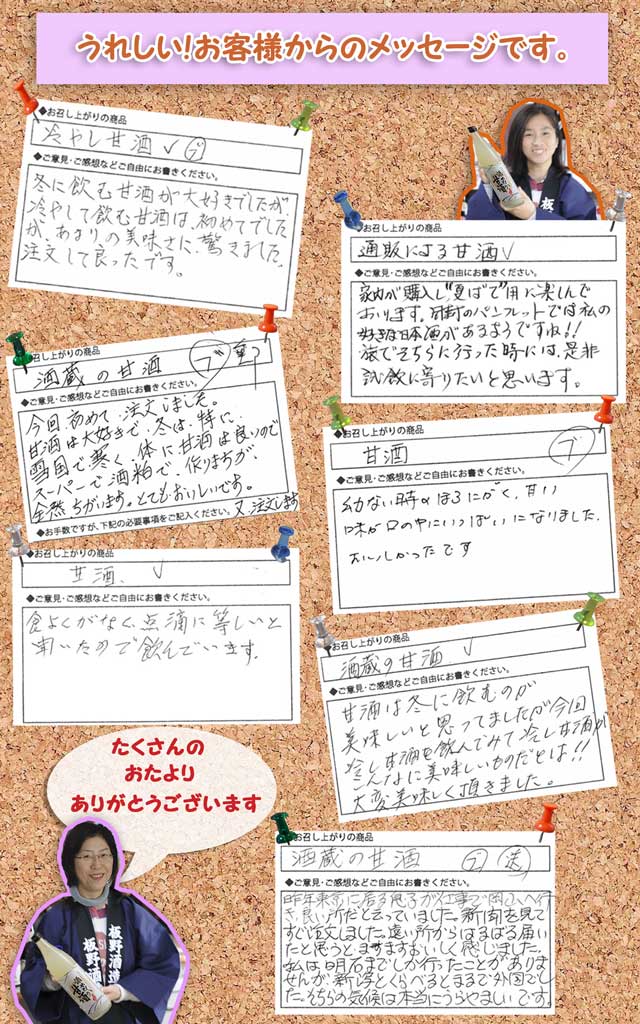 うれしい！お客様からのメッセージです。
◆お召し上がりの商品
冷やし甘酒 ✓ プ
◆ご意見・ご感想などご自由にお書きください。
冬に飲む甘酒が大好きでしたが、
冷やして飲む甘酒は、初めてでした
が、あまりの美味さに、驚きました。
注文して良ったです。
お召し上がりの商品
通販による甘酒 ✓
◆ご意見・ご感想などご自由にお書きください。
家内が購入し"夏ばて"用に楽しんで
おります。同封のパンフレットでは私の
好きな日本酒があるようですね!!
旅でそちらに行った時には、是非
試飲に寄りたいと思います。
お召し上がりの商品
酒蔵の甘酒 プ
◆ご意見・ご感想などご自由にお書きください。
今回初めて、注文しました。
甘酒は大好きで、冬は、特に、
雪国で寒く、体に甘酒は良いので
スーパーで酒粕で、作りますが、
全然ちがいます。とてもおいしいです。
又、注文します
◆お手数ですが、下記の必要事項をご記入ください。
◆お召し上がりの商品
甘酒 プ
◆ご意見・ご感想などご自由にお書きください。
幼ない時のほろにがく、甘い
味が口の中にいっぱいになりました。
おいしかったです
お召し上がりの商品
甘酒、 ✓
◆ご意見・ご感想などご自由にお書きください。
食よくがなく、点滴に等しいと
聞いたので飲んでいます。
◆お召し上がりの商品
酒蔵の甘酒 ✓
◆ご意見・ご感想などご自由にお書きください。
甘酒は冬に飲むのが
美味しいと思ってましたが今回
冷し甘酒を飲んでみて冷し甘酒が
こんなに美味しいものだとは!!
大変美味しく頂きました。
たくさんの
おたより
ありがとうございます
お召し上がりの商品
酒蔵の甘酒 プ 送
◆ご意見・ご感想などご自由にお書きください。
昨年東京に居る息子が仕事で岡山へ行
き、良い所だと云っていました。新聞を見て
すぐ注文しました。遠い所からはるばる届い
たと思うとますますおいしく感じました。
私は明石までしか行ったことがありま
せんが、新潟とくらべるとまるで外国でし
た。そちらの気候は本当にうらやましいです。
板野酒造
板野酒